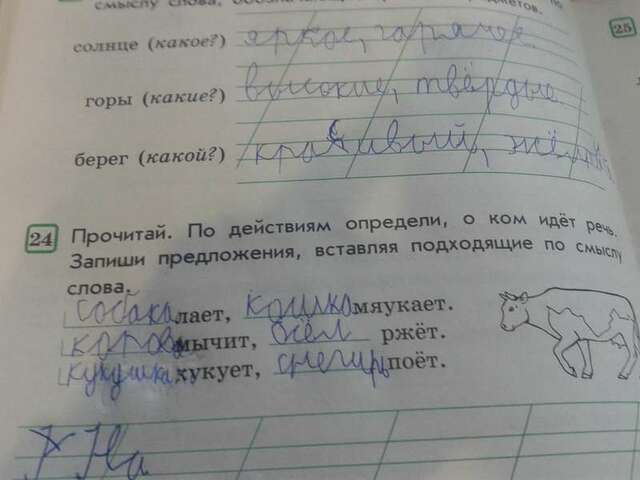 смыслу слова,
солнце (какое?) яркое, горячое.
25
горы (какие?) высокие, твёрдые.
берег (какой?) красивый,
24 Прочитай. По действиям определи, о ком идёт речь.
Запиши предложения, вставляя подходящие по смыслу
слова.
собака лает, кошка мяукает.
корова мычит, осёл ржёт.
кукушка хукует, снегирь поёт.
На